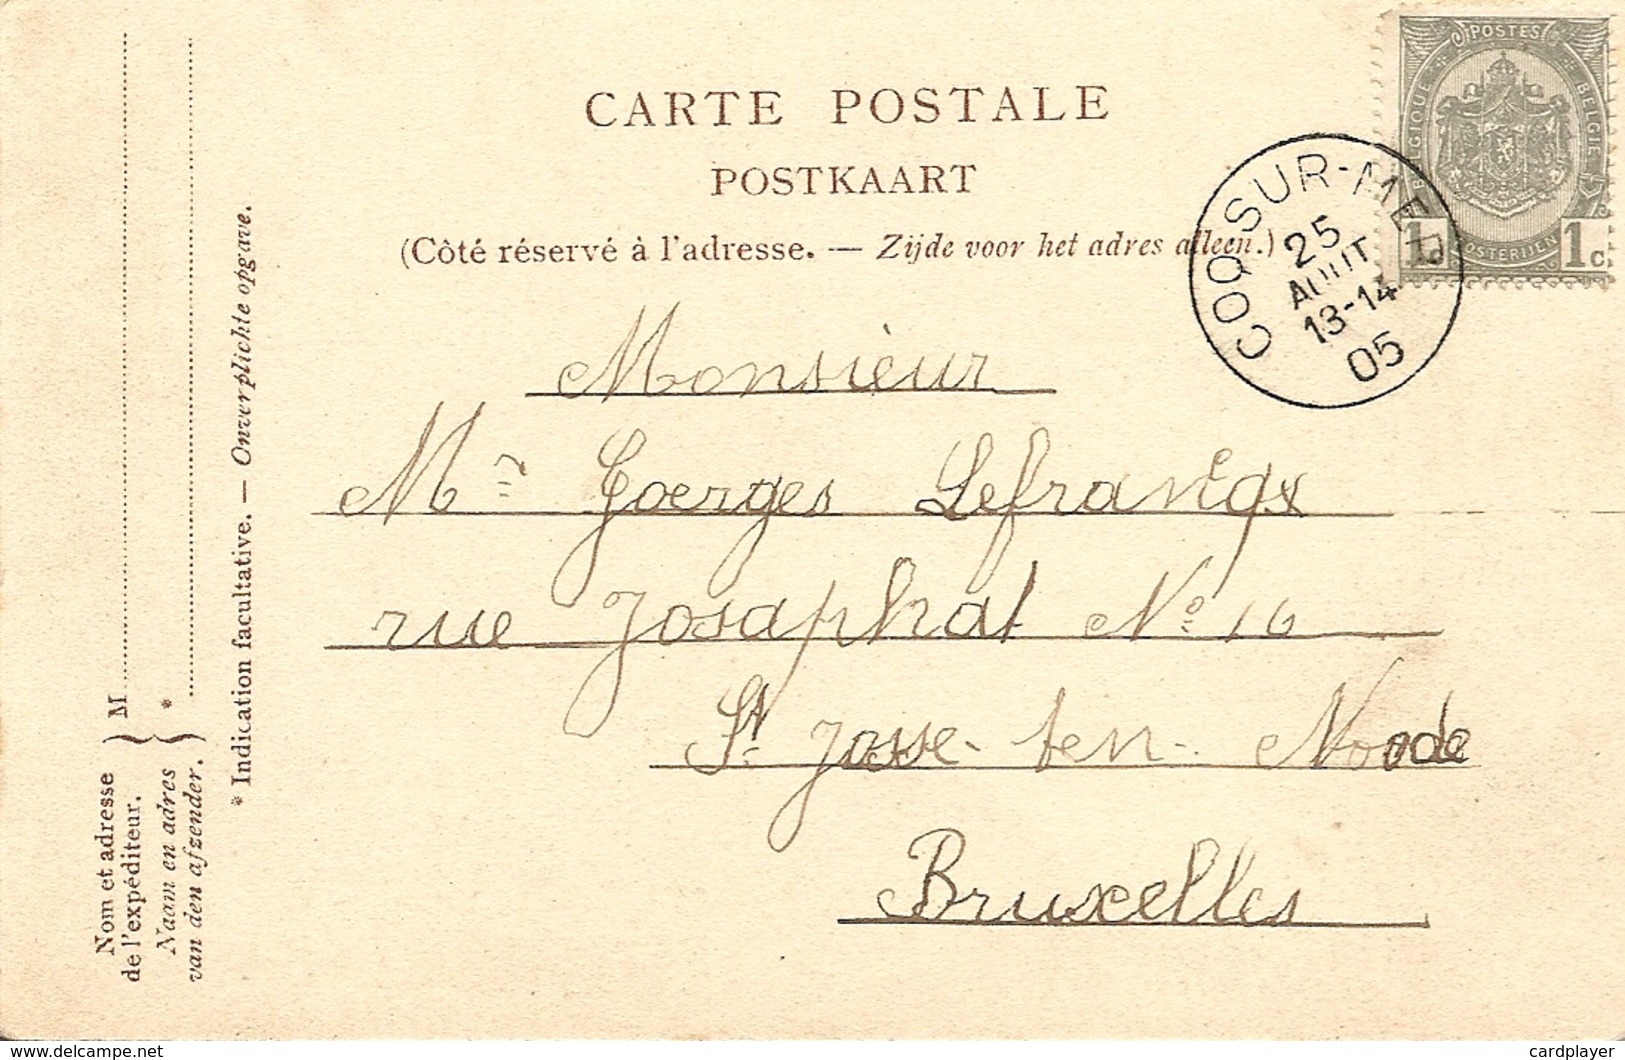 CARTE POSTALE
POSTKAART
(Côté réservé à l'adresse. — Zijde voor het adres alleen.)
POSTES
BELGIQUE BELGIE
POSTERIJEN
1 1c
COQ-SUR-MER
25
AOUT
13-14
05
Monsieur
Mr Goerges
rue Josaphat No 16
St Josse-ten-Noode
Bruxelles
Nom et adresse
de l'expéditeur.
Naam en adres
van den afzender.
M
*
* Indication facultative. — Onverplichte opgave.
www.delcampe.net
cardplayer